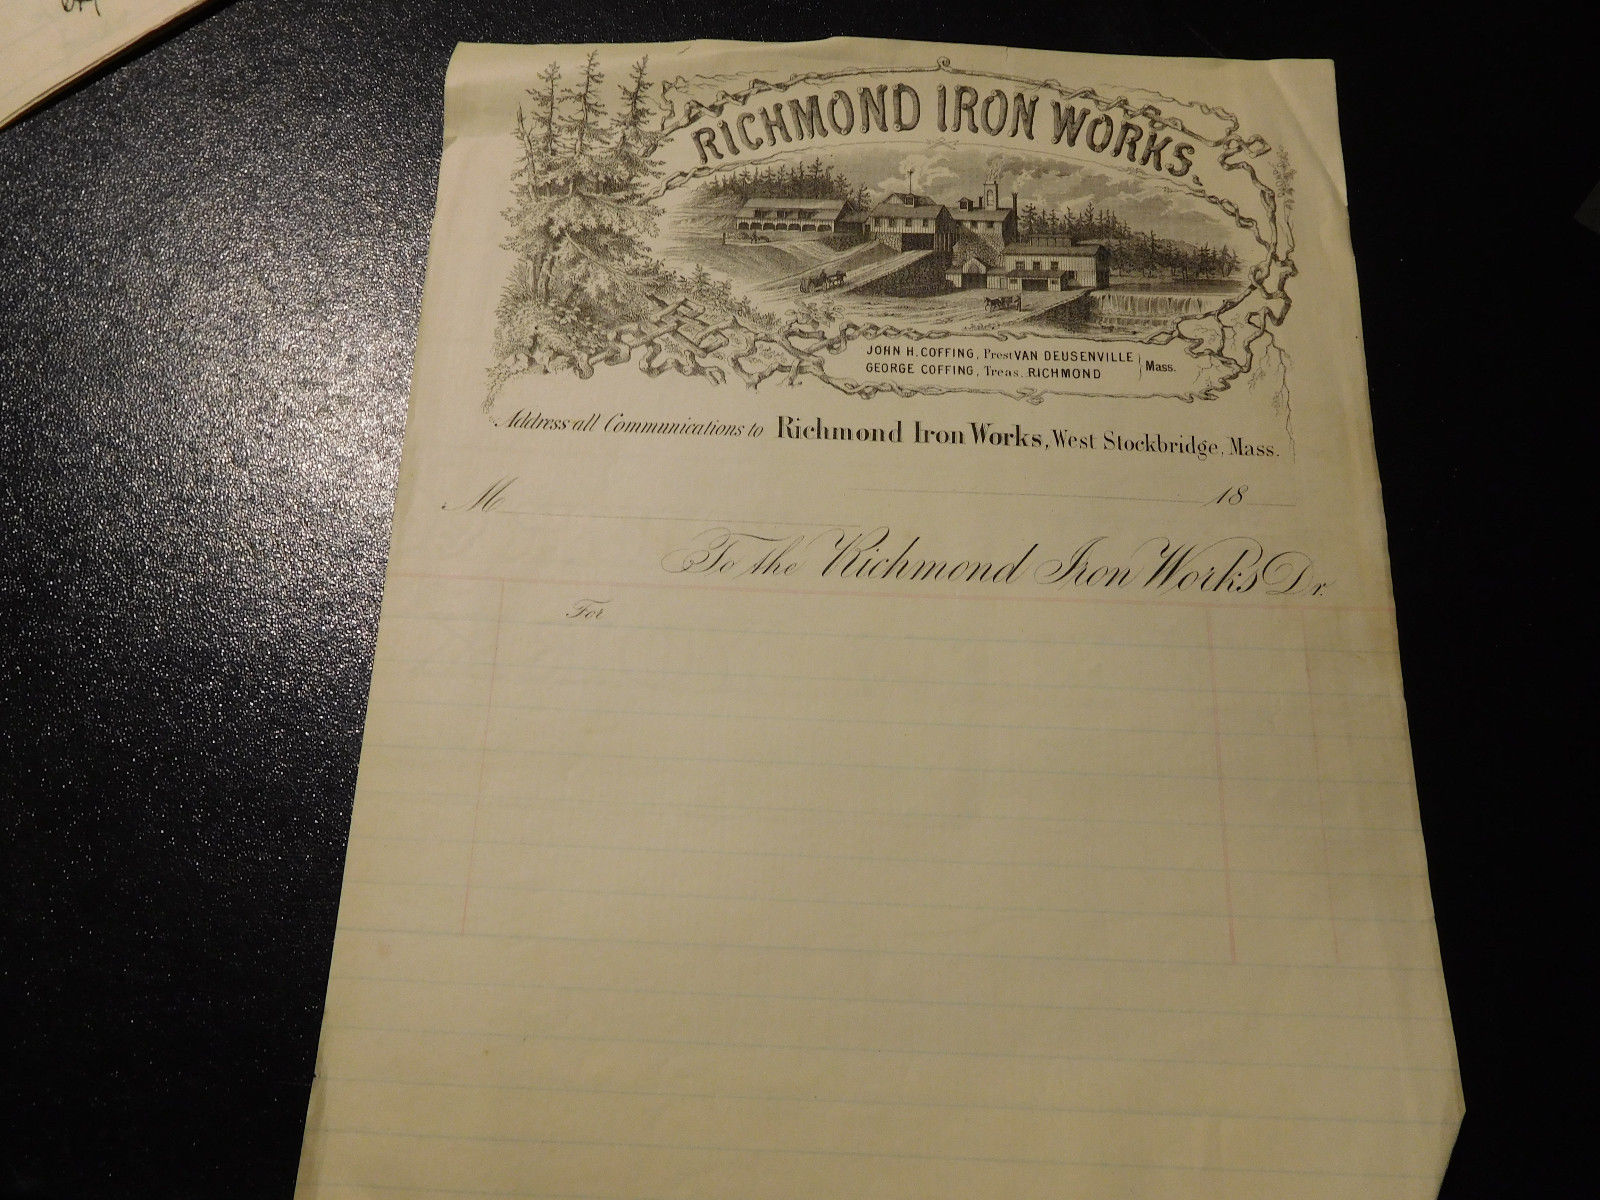 RICHMOND IRON WORKS.
JOHN H. COFFING, Prest VAN DEUSENVILLE
GEORGE COFFING, Treas. RICHMOND
Mass.
Address all Communications to Richmond Iron Works, West Stockbridge, Mass.
M 18
To the Richmond Iron Works Dr.
For